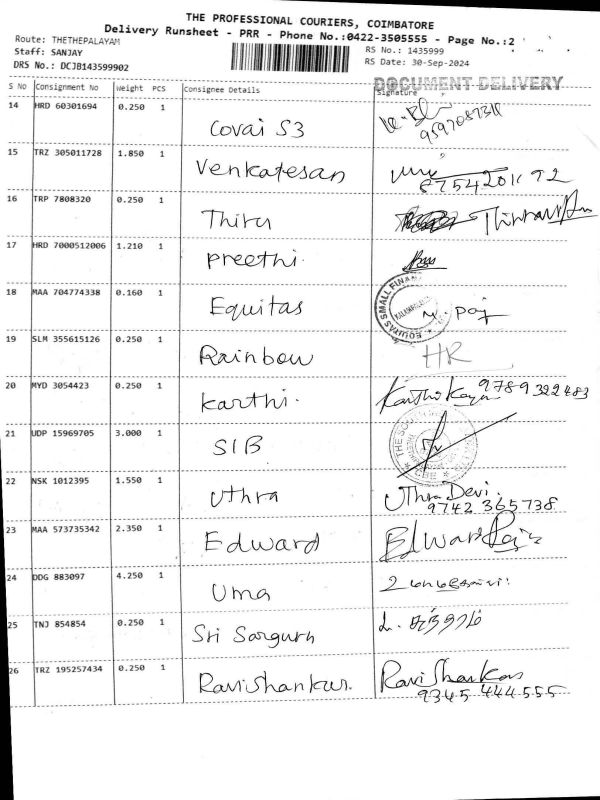 THE PROFESSIONAL COURIERS, COIMBATORE
Delivery Runsheet - PRR - Phone No.:0422-3505555 - Page No.:2
Route: THETHEPALAYAM
RS No.: 1435999
Staff: SANJAY
RS Date: 30-Sep-2024
DRS No.: DCJB143599902
DOCUMENT DELIVERY
S No Consignment No Weight PCS Consignee Details Signature
14 HRD 60301694 0.250 1 Covai S3
15 TRZ 305011728 1.850 1 Venkatesan
8754201192
16 TRP 7808320 0.250 1 Thiru
17 HRD 7000512006 1.210 1 Preethi
18 MAA 704774338 0.160 1 Equitas
EQUITAS SMALL FINAN
19 SLM 355615126 0.250 1 Rainbow HR
20 MYD 3054423 0.250 1 Karthi. 9789322483
21 UDP 15969705 3.000 1 SIB
THE SOUTH
22 NSK 1012395 1.550 1 Uthra Uthra Devi.
9742 365738
23 MAA 573735342 2.350 1 Edward Edward Raj
24 DDG 883097 4.250 1 Uma
25 TNJ 854854 0.250 1 Sri Sarguru
26 TRZ 195257434 0.250 1 Ravishankur. Ravi Shankar
9345 444555